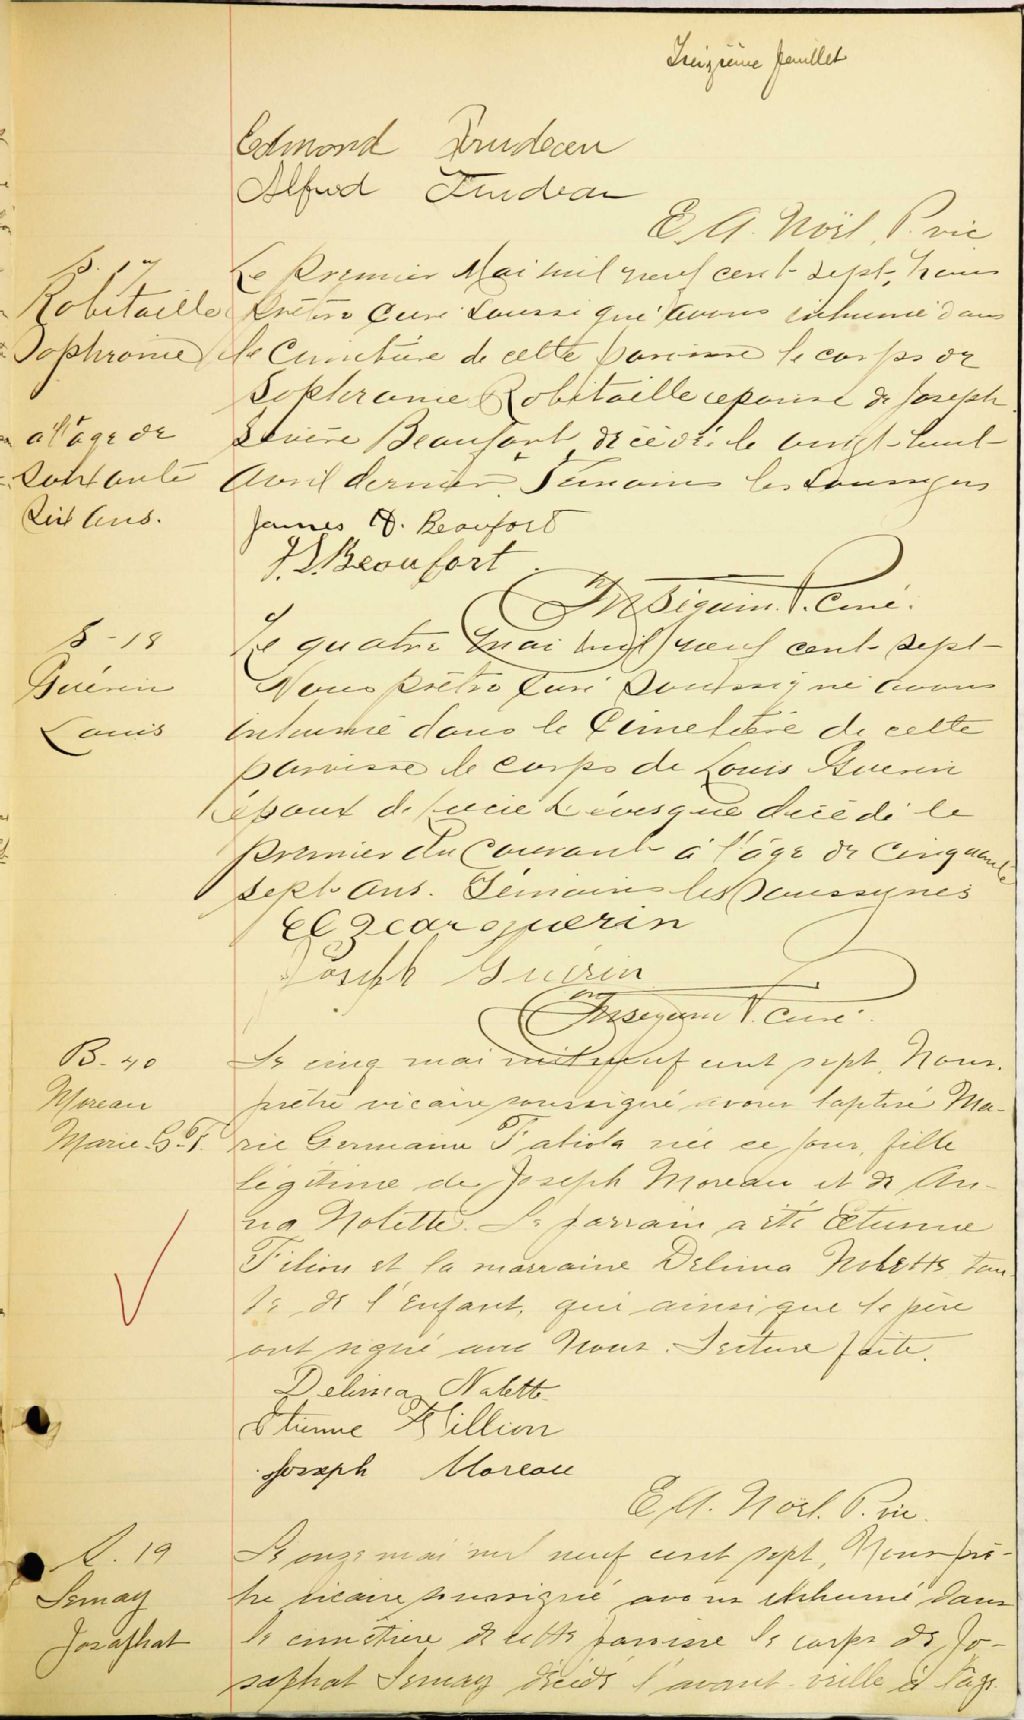 Treizième feuillet
Edmond Trudeau
Alfred Trudeau
E. A. Noël, P. vic
S. 17
Robitaille
Sophronie
à l'âge de
soixante
six ans.
Le premier Mai mil neuf cent sept, Nous
Prêtre Curé soussigné avons inhumé dans
le Cimetière de cette paroisse le corps de
Sophronie Robitaille epouse de Joseph
Sévère Beaufort, décédée le vingt-huit
Avril dernier. Témoins les soussignés
James A. Beaufort
J. S. Beaufort
Séguin P. Curé.
S - 18
Guérin
Louis
Le quatre mai mil neuf cent sept
Nous prêtre Curé soussigné avons
inhumé dans le Cimetière de cette
paroisse le corps de Louis Guerin
époux de Lucie Lévesque décédé le
premier du Courant à l'âge de cinquante
sept ans. Témoins les soussignés
Elzear guérin
Joseph Guérin
Séguin P. Curé.
B. 40
Moreau
Marie G. F.
Le cinq mai mil neuf cent sept, Nous
prêtre vicaire soussigné avons baptisé Ma-
rie Germaine Fabiola née ce jour, fille
légitime de Joseph Moreau et de An-
na Nolette. Le parrain a été Etienne
Filion et la marraine Delima Nolette tan-
te de l'enfant, qui ainsi que le père
ont signé avec Nous. Lecture faite.
Delima Nolette
Etienne Fillion
Joseph Moreau
E. A. Noël. P. vic.
S. 19
Lemay
Josaphat
Le onze mai mil neuf cent sept, Nous prê-
tre vicaire soussigné avons inhumé dans
le cimetière de cette paroisse le corps de Jo-
saphat Lemay décédé l'avant-veille à l'âge